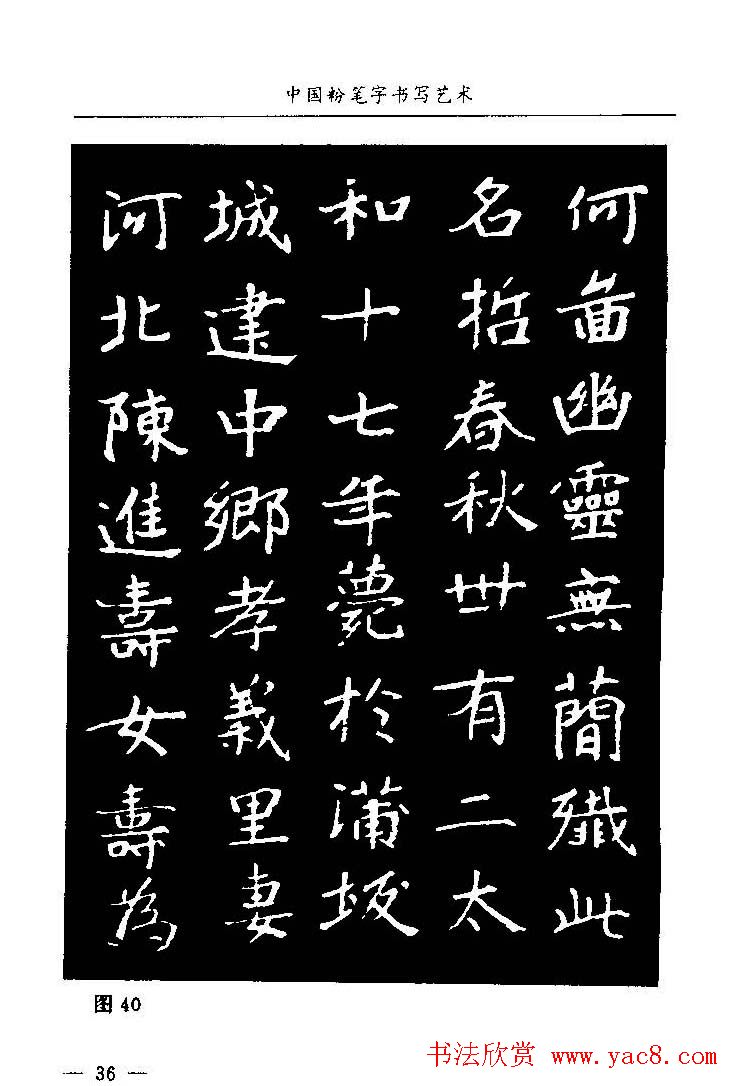 中国粉笔字书写艺术
何啚幽靈無簡殲此
名哲春秋卅有二太
和十七年薨於蒲坂
城建中鄉孝義里妻
河北陳進壽女壽為
图40
— 36 —
书法欣赏 www.yac8.com